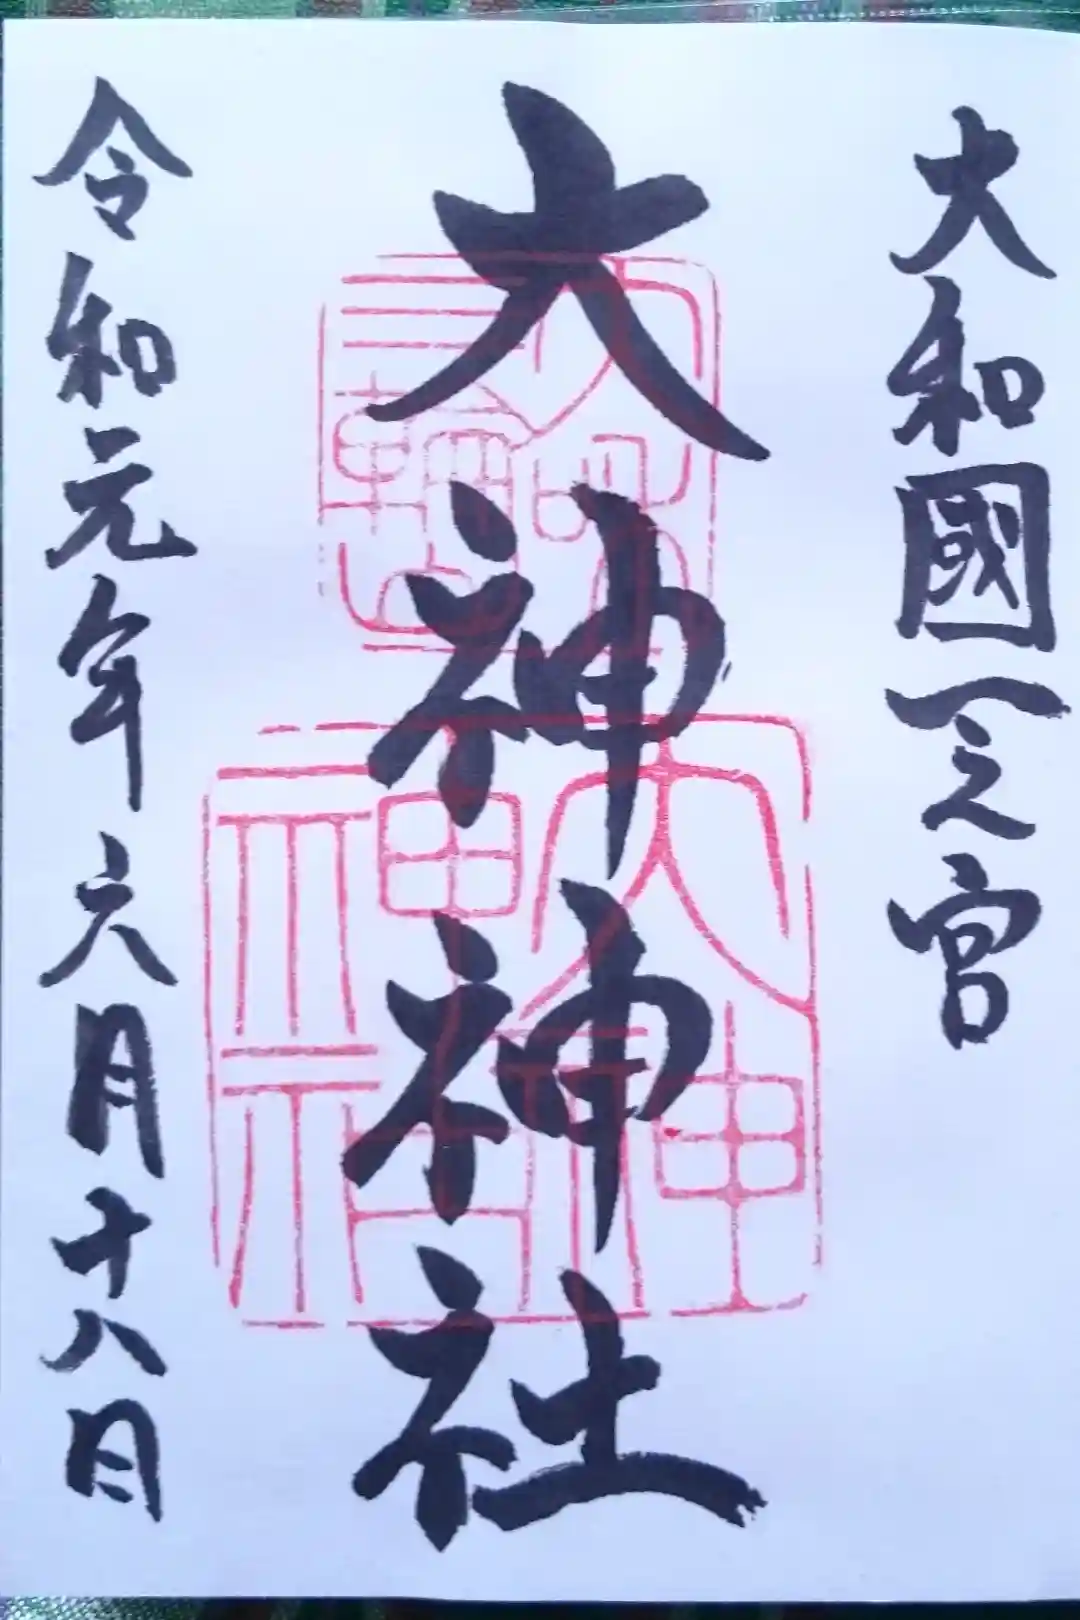 大和國一之宮
大神神社
令和元年六月十八日